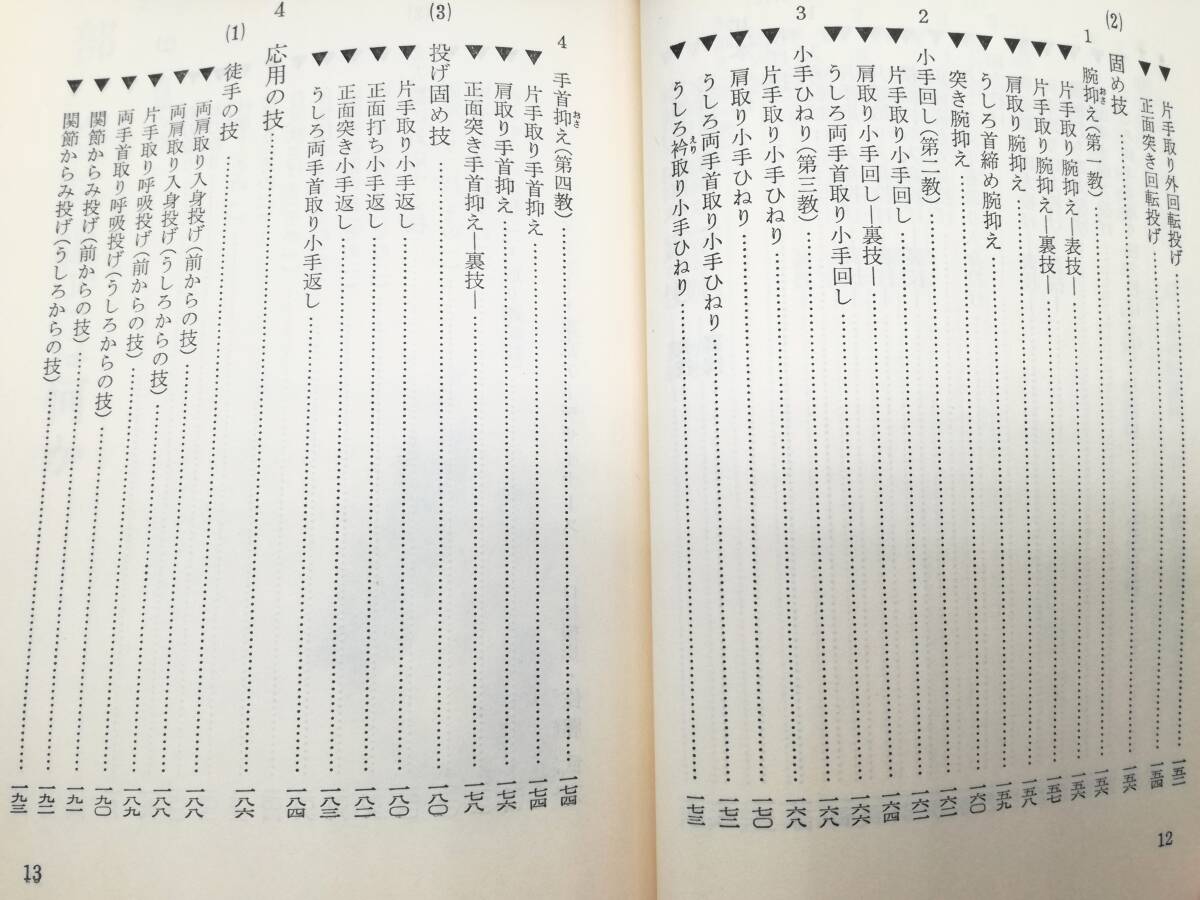 ▼片手取り外回転投げ……一五二
▼正面突き回転投げ……一五四
(2) 固め技……一五六
1 腕抑え(おさ)(第一教)……一五六
▼片手取り腕抑え—表技—……一五六
▼片手取り腕抑え—裏技—……一五七
▼肩取り腕抑え……一五八
▼うしろ首締め腕抑え……一五九
▼突き腕抑え……一六〇
2 小手回し(第二教)……一六二
▼片手取り小手回し……一六二
▼肩取り小手回し—裏技—……一六四
▼うしろ両手首取り小手回し……一六六
3 小手ひねり(第三教)……一六八
▼片手取り小手ひねり……一六八
▼肩取り小手ひねり……一七〇
▼うしろ両手首取り小手ひねり……一七二
▼うしろ衿(えり)取り小手ひねり……一七三
12
4 手首抑え(おさ)(第四教)……一七四
▼片手取り手首抑え……一七四
▼肩取り手首抑え……一七六
▼正面突き手首抑え—裏技—……一七八
(3) 投げ固め技……一八〇
▼片手取り小手返し……一八〇
▼正面打ち小手返し……一八二
▼正面突き小手返し……一八三
▼うしろ両手首取り小手返し……一八四
4 応用の技……一八六
(1) 徒手の技……一八八
▼両肩取り入身投げ(前からの技)……一八八
▼両肩取り入身投げ(うしろからの技)……一八九
▼片手取り呼吸投げ(前からの技)……一九〇
▼両手首取り呼吸投げ(うしろからの技)……一九一
▼関節からみ投げ(前からの技)……一九二
▼関節からみ投げ(うしろからの技)……一九三
13